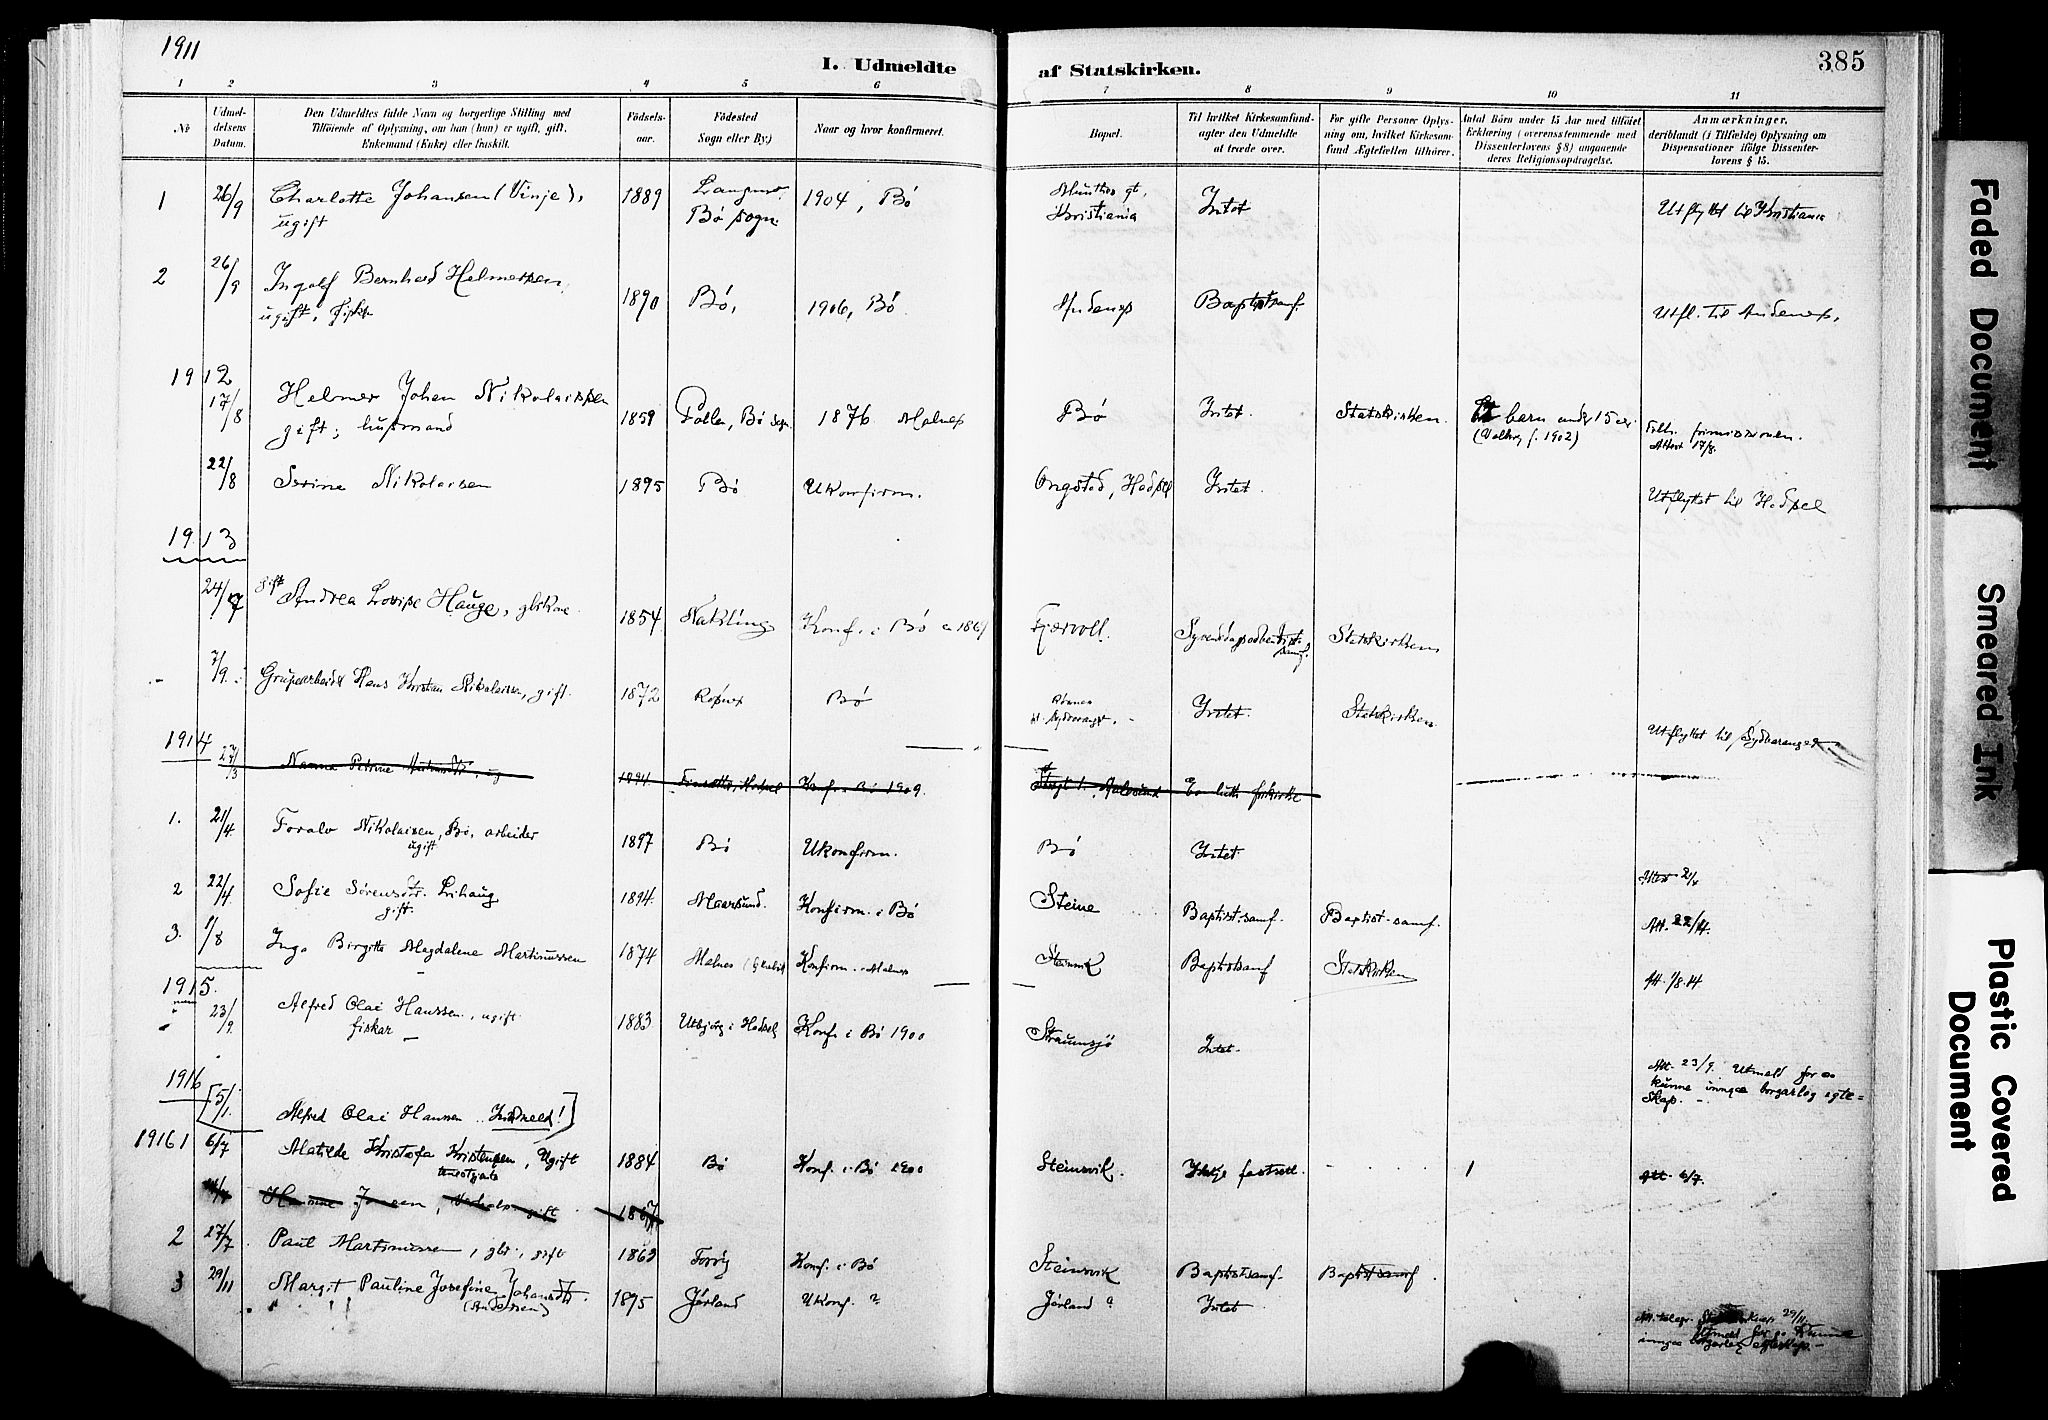 1911
I. Udmeldte af Statskirken.
385
1 2 3 4 5 6 7 8 9 10 11
№
Udmeldelsens Datum.
Den Udmeldtes fulde Navn og borgerlige Stilling med
Tilføiende af Oplysning, om han (hun) er ugift, gift,
Enkemand (Enke) eller fraskilt.
Fødselsaar.
Fødested
Sogn eller By.)
Naar og hvor konfirmeret.
Bopæl.
Til hvilket Kirkesamfund agter den Udmeldte at træde over.
For gifte Personer Oplysning om, hvilket Kirkesamfund Ægtefællen tilhører.
Antal Børn under 15 Aar med tilføiet Erklæring (overensstemmende med Dissenterlovens § 8) angaaende deres Religionsopdragelse.
Anmærkninger,
deriblandt (i Tilfælde) Oplysning om Dispensationer ifølge Dissenterlovens § 15.
1 26/9 Charlotte Johansen (Vinje), 1889 1904, Bø Intet Utflyttet til Kristiania
ugift Bø sogn Kristiania
2 26/9 Ingolf Bernhard Helmersen, 1890 Bø, 1906, Bø Andenes Baptistsamf. Utfl. til Andenes,
ugift, fisker
1912
17/8 Helmer Johan Nikolaissen 1859 Bø sogn 1876 Malnes Bø Intet. Statskirken. barn under 15 aar
gift; husmand (Valborg f. 1902) Attest 17/8.
22/8 Serine Nikolaisen 1895 Bø Ukonfirm. Ongstad, Hadsel Intet. Utflyttet til Hadsel
1913
24/7 gift Andrea Lovise Hauge, 1854 Konf. i Bø Fjærvoll. Statskirken
7/9 Grubearbeider Hans Kristian Nikolaissen, gift. 1872 Bø Intet. Statskirken Utflyttet til Sydvaranger
1914
27/3 Nanna Petrine 1894 Hadsel Konf. i Bø 1909. Aalesund Ev. luth. frikirke
1. 21/4 Toralv Nikolaisen, Bø, arbeider 1897 Bø Ukonfirm. Bø Intet
ugift
2 22/4 Sofie Sørensdtr. Lihaug 1894 Maarsund. Konfirm. i Bø Steine Baptist-samf. Baptist-samf. Att. 22/4.
gift.
3. 1/8 Inga Birgitte Magdalene Martinussen 1874 Malnes Konfirm. Malnes Steinsvik Baptistsamf Statskirken Att. 1/8.14.
1915.
23/9. Alfred Olai Hanssen, ugift 1883 Hadsel Konf. i Bø 1900 Straumsjø Intet. Att. 23/9. Utmeld for aa
fiskar kunne inngaa borgarleg egte-
skap. -
1916
[5/1. Alfred Olai Hansen Innmeld!]
1916 1 6/7 Matilde Kristofa Kristensen, Ugift 1884 Bø Konf. i Bø 1900 Steinsvik. Ikkje fastsett. 1 Att. 6/7.
tenestgjente
1867
2 27/7 Paul Martinussen, gbr., gift 1863 Konf. i Bø Steinsvik Baptistsamf. Baptistsamf.
3 29/11 Margit Pauline Josefine Johansdtr. 1895 Jørland Ukonf. ? Jørland ? Intet 29/11
(Andersen) Utmeld for aa kunne
inngaa borgarleg egteskap. -
Faded Document
Smeared Ink
Plastic Covered
Document